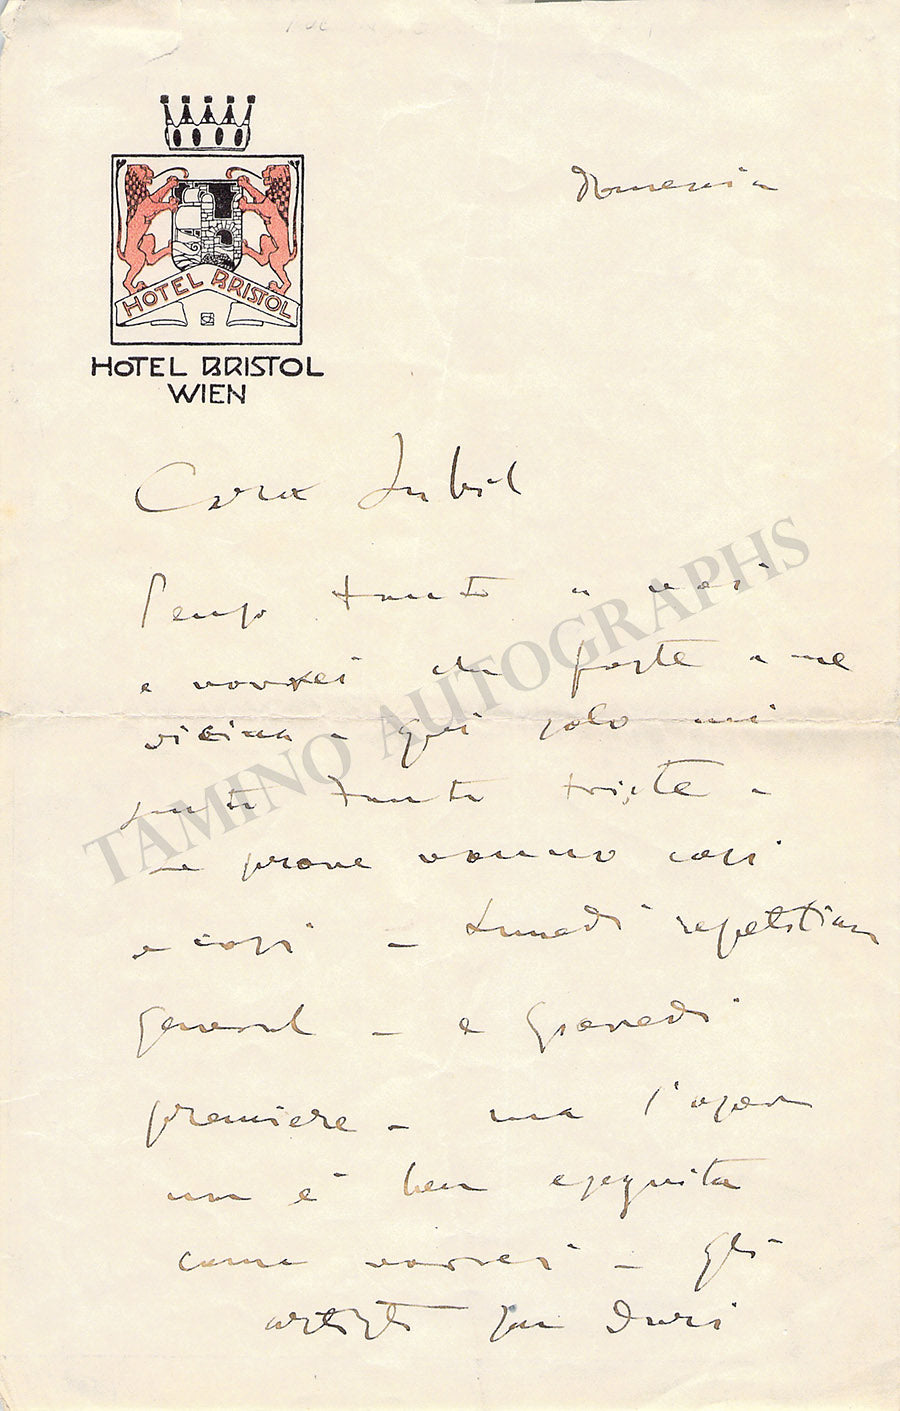 HOTEL BRISTOL
HOTEL BRISTOL
WIEN
Domenica
Cara Sybil
Penso tanto a voi
e vorrei che foste a me
vicina - qui solo mi
sento tanto triste -
Le prove vanno così
e così - Lunedì repetition
general - e Giovedì
premiere - ma l'opera
non è ben eseguita
come vorrei - gli
artisti son duri
TAMINO AUTOGRAPHS